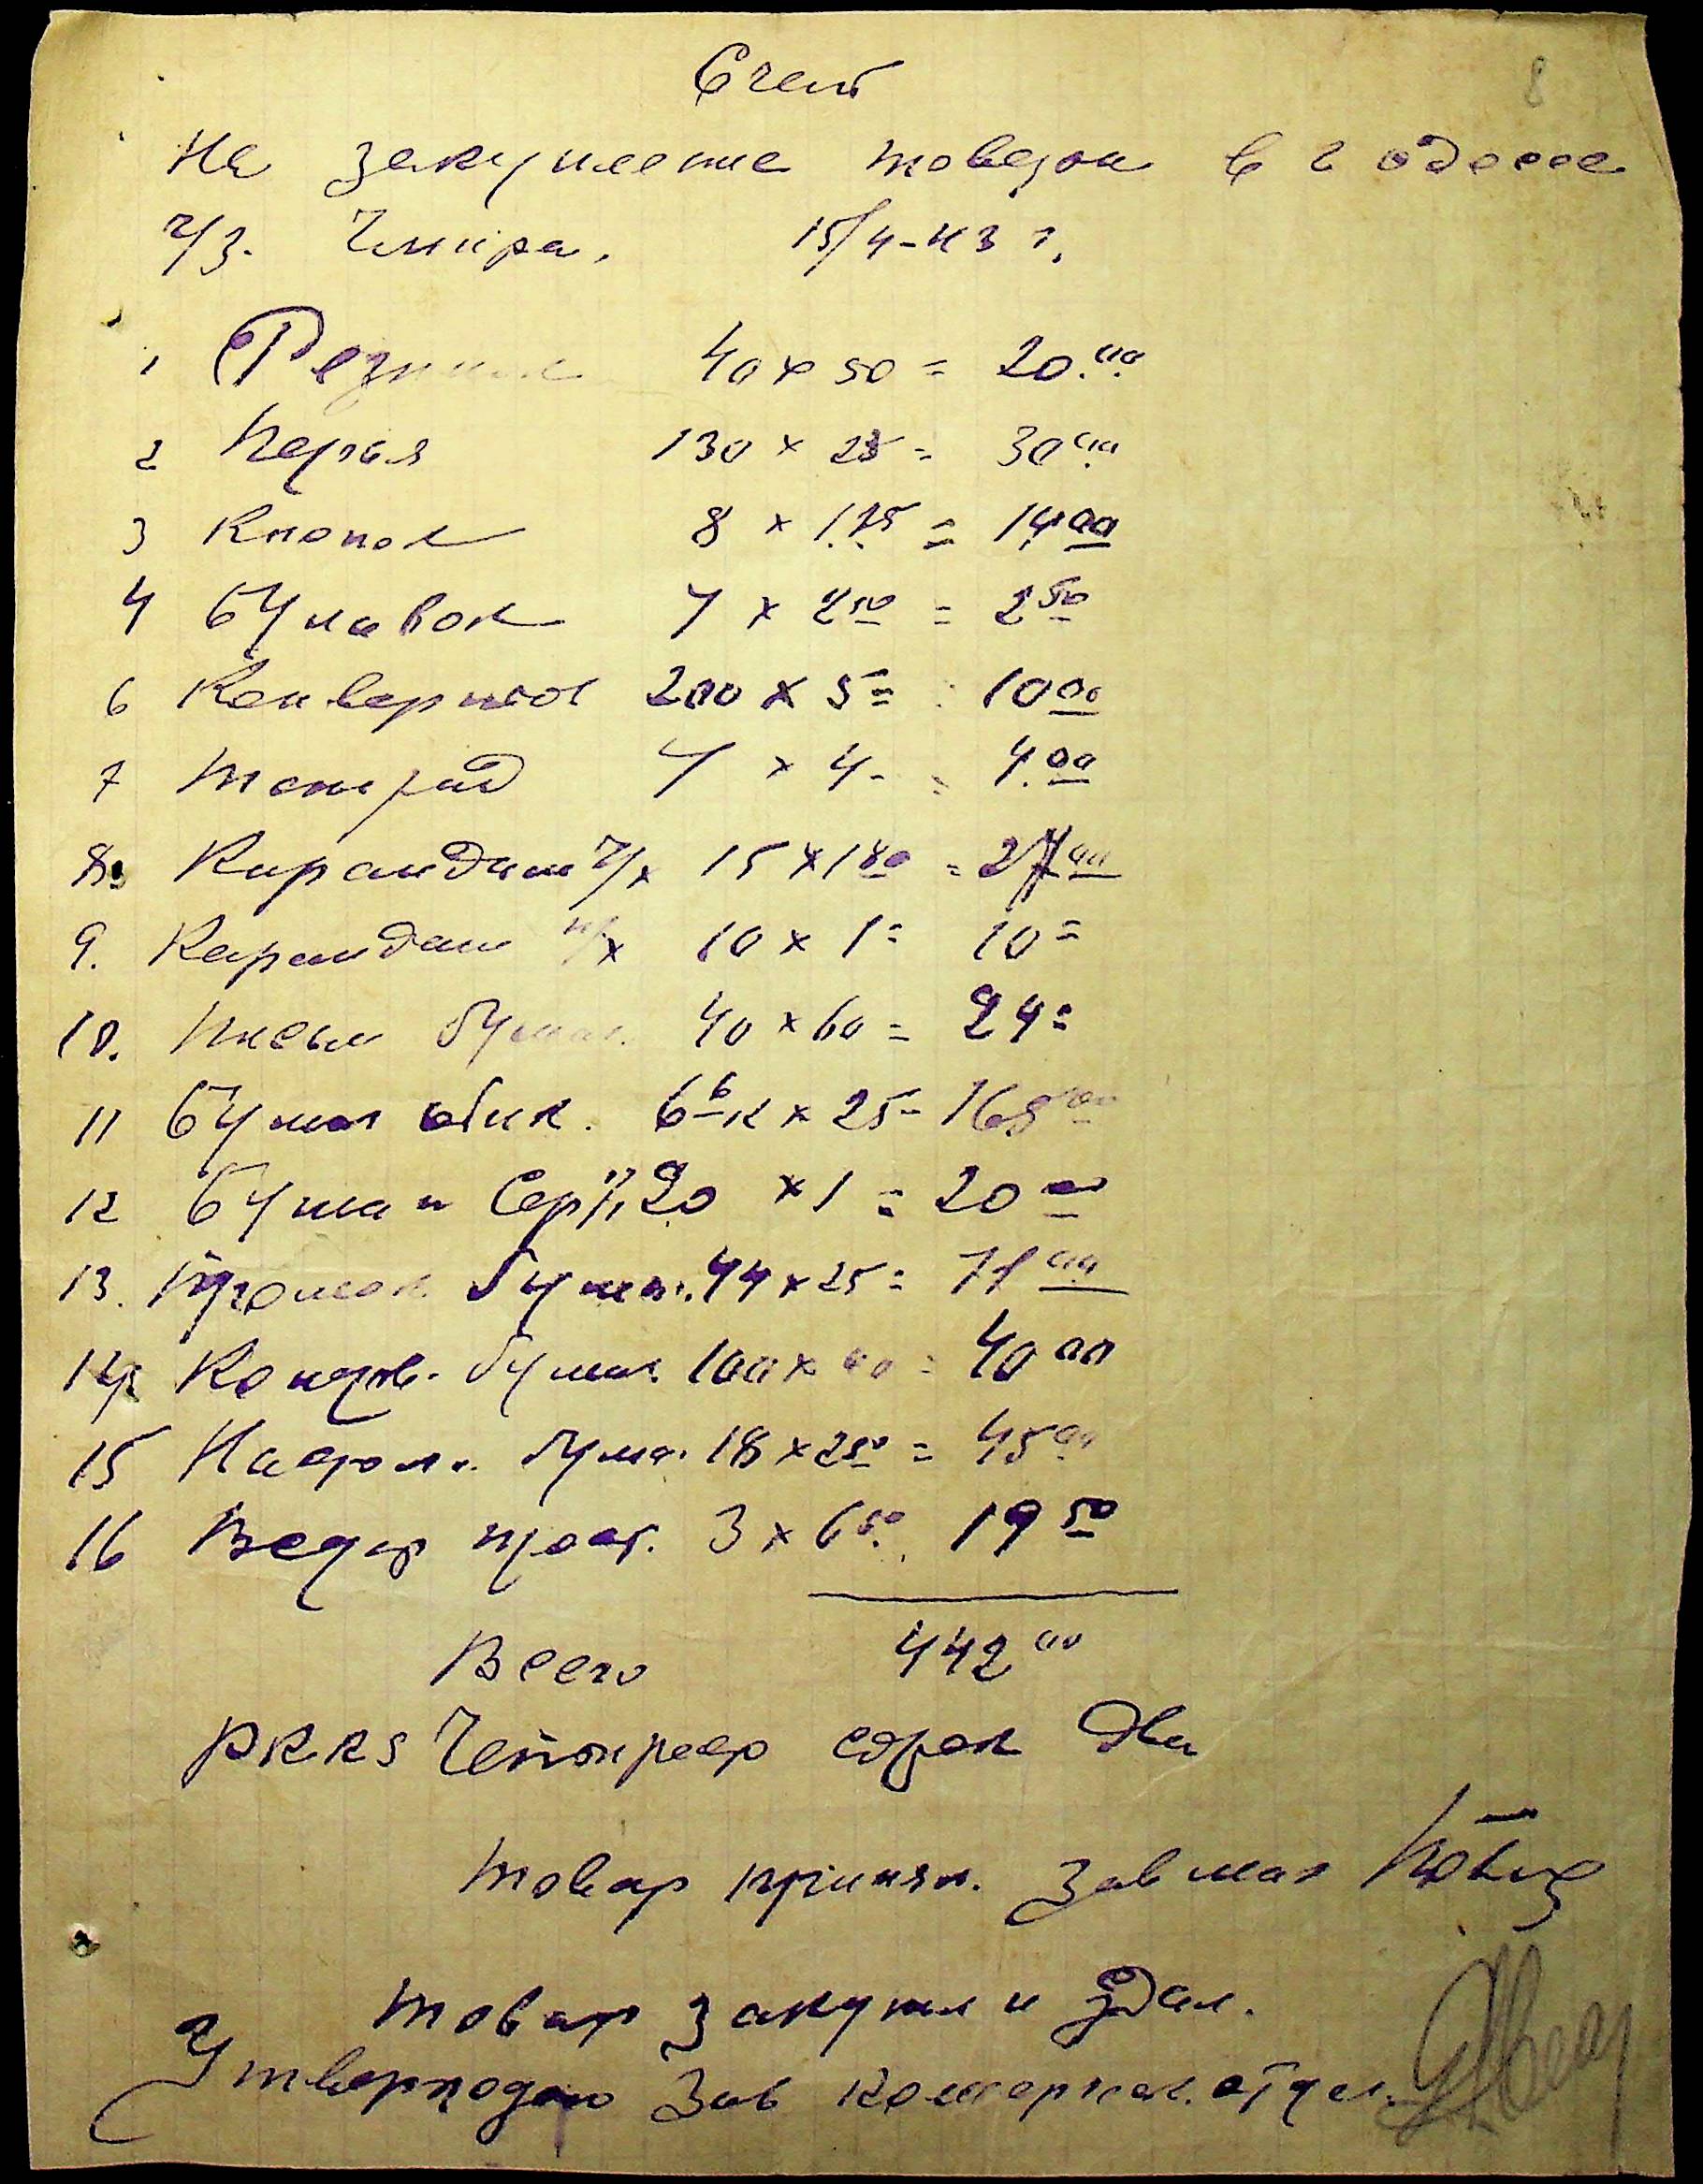 Счет
8
На закупление товара в г Одессе
ч/з. Чмира. 15/4-43 г.
1 Резинок 40 x 50 = 20.00
2 Перья 130 x 23 = 30 00
3 Кнопок 8 x 1.75 = 14 00
4 Булавок 1 x 2 50 = 2 50
6 Конвертов 200 x 5 = 10 00
7 Тетрад 1 x 4 - = 4.00
8. Карандаш ч/х 15 x 1 80 = 27 00
9. Карандаш х 10 x 1 = 10 =
10. Писым бумаг. 40 x 60 = 24 =
11 Бумаг обик. 6 6 к x 25 - 165 00
12 Бумаг Сер 20 x 1 = 20 00
13. Промок. бумаг. 44 x 25 = 11 00
14 Копров. бумаг. 100 x 40 = 40 00
15 Настол. бума. 18 x 2 50 = 45 00
16 3 x 6 50. 19 50
Всего 442 00
РККS Четыреср сорок два
Товар принял. Зав маг
Товар закупил и здал.
Утверждаю Зав комерческ. отдел.